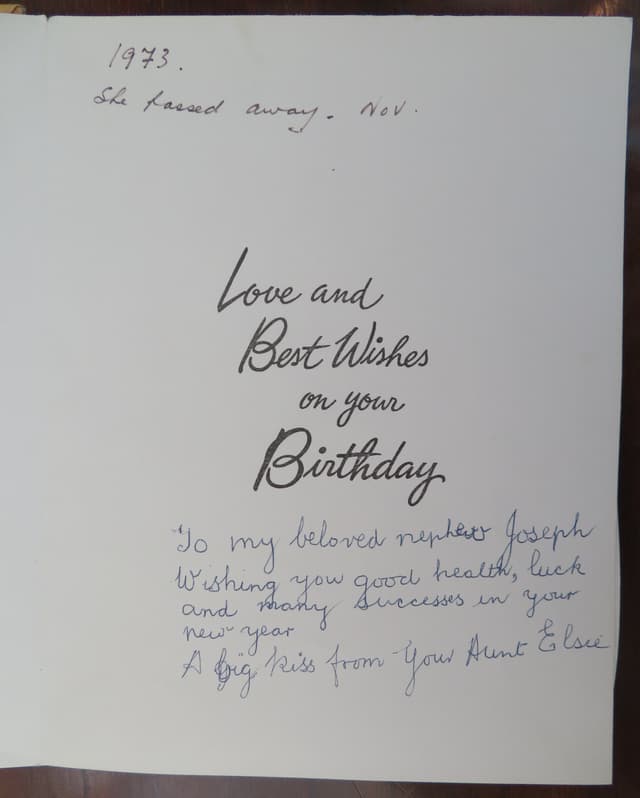 1973.
She passed away. Nov.
Love and
Best Wishes
on your
Birthday
To my beloved nephew Joseph
Wishing you good health, luck
and many successes in your
new year
A big kiss from Your Aunt Elsie